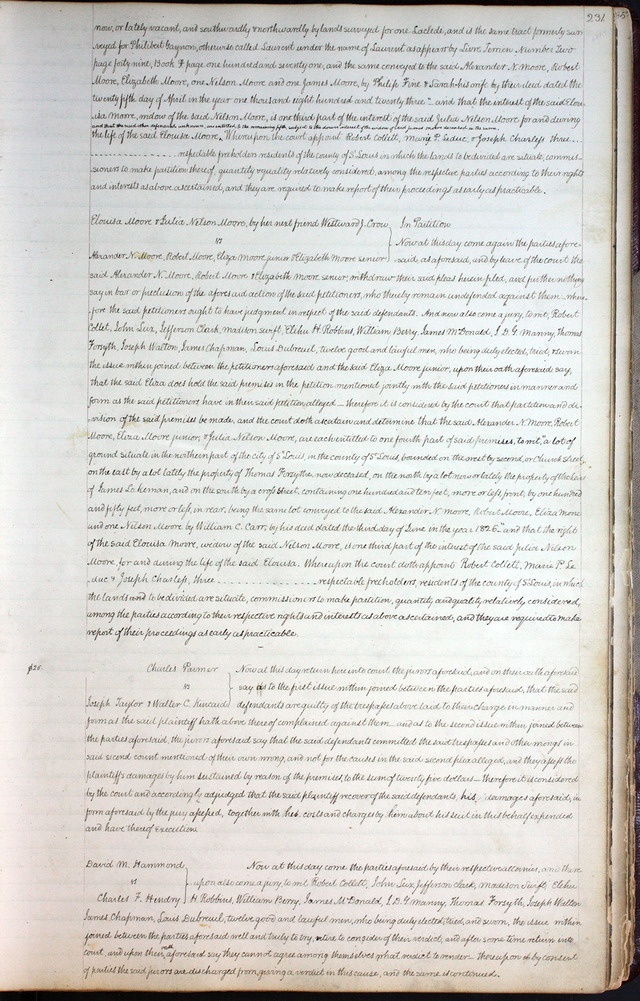 231
now, or lately vacant, and southwardly & northwardly by lands surveyed for one Laclede, and is the same tract formerly sur-
veyed for Philibert Gagnon, otherwise called Laurent under the name of Laurent as appears by Livre Terrien Number Two
page forty nine, Book F page one hundred and seventy one, and the same conveyed to the said Alexander N. Moore, Robert
Moore, Elizabeth Moore, one Nelson Moore and one James Moore, by Philip Fine & Sarah his wife by their deed dated the
twenty fifth day of April in the year one thousand eight hundred and twenty three" and that the interest of the said Elou-
isa Moore, widow of the said Nelson Moore, is one third part of the interest of the said Julia Nelson Moore for and during
the life of the said Elouisa Moore. Whereupon the court appoint Robert Collett, Marie P. Leduc, & Joseph Charless three
respectable freeholders residents of the county of St Louis in which the lands to be divided are situate, commis-
sioners to make partition thereof, quantity & quality relatively considered, among the respective parties according to their rights
and interests as above ascertained, and they are required to make report of their proceedings as early as practicable.
Elouisa Moore & Julia Nelson Moore, by her next friend Westward J. Crow, In Partition
vs Now at this day come again the parties afore-
Alexander N. Moore, Robert Moore, Eliza Moore junior & Elizabeth Moore senior said, as aforesaid, and by leave of the court the
said Alexander N. Moore, Robert Moore & Elizabeth Moore senior, withdraw their said pleas herein filed, and further nothing
say in bar or preclusion of the aforesaid action of the said petitioners, who thereby remain undefended against them where-
fore the said petitioners ought to have judgment in respect of the said defendants. And now also come a jury, to wit, Robert
Collet, John Lux, Jefferson Clark, Madison Swift, Elihu H. Robbins, William Berry, James McDonald, J. D. G. Manny, Thomas
Forsyth, Joseph Walton, James Chapman, Louis Dubreuil, twelve good and lawful men, who being duly elected, tried, & sworn
the issue within joined between the petitioners aforesaid and the said Eliza Moore junior, upon their oath aforesaid say,
that the said Eliza does hold the said premises in the petition mentioned jointly with the said petitioners in manner and
form as the said petitioners have in their said petition alleged — therefore it is considered by the court that partition and di-
vision of the said premises be made, and the court doth ascertain and determine that the said Alexander N. Moore, Robert
Moore, Eliza Moore junior, & Julia Nelson Moore, are each entitled to one fourth part of said premises, to wit, "a lot of
ground situate in the northern part of the city of St Louis, in the county of St Louis, bounded on the west by second, or Church Street,
on the east by a lot lately the property of Thomas Forsythe, now deceased, on the north by a lot now or lately the property of the heirs
of James Lakeman, and on the south by a cross street, containing one hundred and ten feet, more or less, front, by one hundred
and fifty feet, more or less, in rear, being the same lot conveyed to the said Alexander N. Moore, Robert Moore, Eliza Moore
and one Nelson Moore by William C. Carr, by his deed dated the third day of June in the year 1826" and that the right
of the said Elouisa Moore, widow of the said Nelson Moore, is one third part of the interest of the said Julia Nelson
Moore, for and during the life of the said Elouisa. Whereupon the court doth appoint Robert Collett, Marie P. Le
duc & Joseph Charless, three respectable freeholders, residents of the county of St Louis, in which
the lands to be divided are situate, commissioners to make partition, quantity and quality relatively considered,
among the parties according to their respective rights and interests as above ascertained, and they are required to make
report of their proceedings as early as practicable.
$25. Charles Parmer Now at this day return here into court the jurors aforesaid, and on their oath aforesaid
vs say as to the first issue within joined between the parties aforesaid, that the said
Joseph Taylor & Walter C. Kincaid defendants are guilty of the trespasses above laid to their charge in manner and
form as the said plaintiff hath above thereof complained against them — and as to the second issue within joined between
the parties aforesaid, the jurors aforesaid say that the said defendant committed the said trespasses and other wrongs in
said second count mentioned of their own wrong, and not for the causes in the said second plea alleged, and they assess the
plaintiff's damages by him sustained by reason of the premises, to the sum of twenty five dollars — therefore it is considered
by the court and accordingly adjudged that the said plaintiff recover of the said defendants, his damages aforesaid, in
form aforesaid by the jury assessed, together with his costs and charges by him about his suit in this behalf expended
and have thereof execution.
David M. Hammond Now at this day come the parties aforesaid by their respective attornies, and there
vs upon also come a jury, to wit, Robert Collett, John Lux, Jefferson Clark, Madison Swift, Elihu
Charles F. Hendry H. Robbins, William Berry, James McDonald, J. D. G. Manny, Thomas Forsyth, Joseph Walton
James Chapman, Louis Dubreuil, twelve good and lawful men, who being duly elected, tried, and sworn, the issue within
joined between the parties aforesaid well and truly to try, retire to consider of their verdict, and after some time return into
court, and upon their oath aforesaid say they cannot agree among themselves what verdict to render. Thereupon & by consent
of parties the said jurors are discharged from giving a verdict in this cause, and the same is continued.